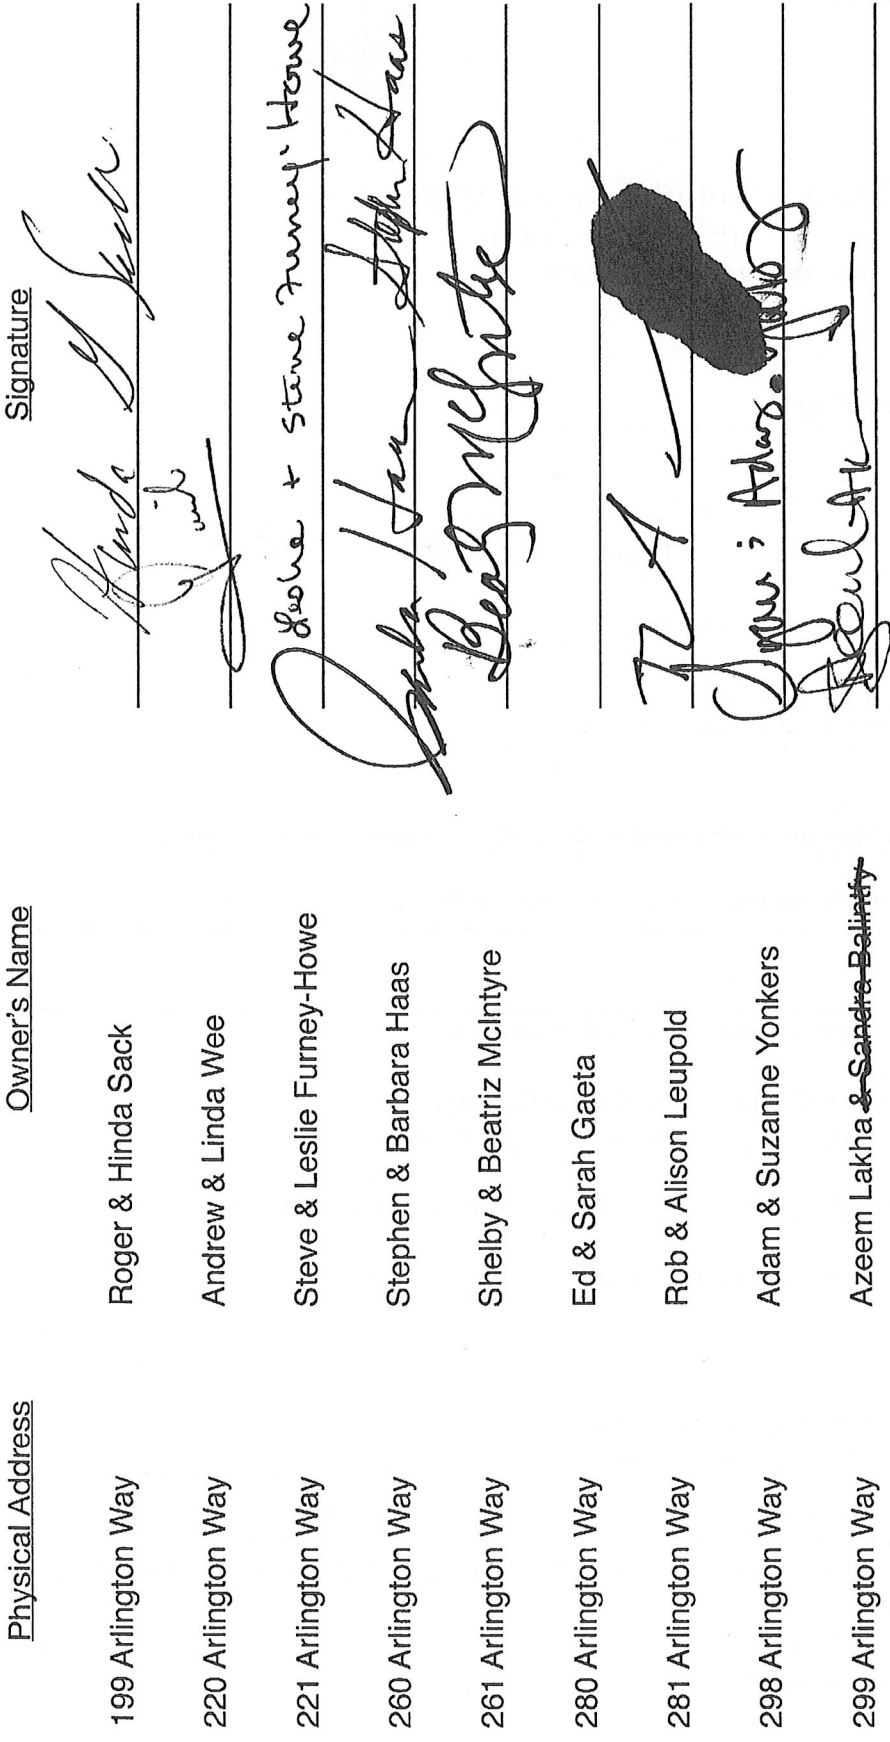 Physical Address Owner's Name Signature
199 Arlington Way Roger & Hinda Sack Hinda G Sack
220 Arlington Way Andrew & Linda Wee
221 Arlington Way Steve & Leslie Furney-Howe Leslie + Steve Furney-Howe
260 Arlington Way Stephen & Barbara Haas Haas Stephen Haas
261 Arlington Way Shelby & Beatriz McIntyre Beatriz McIntyre
280 Arlington Way Ed & Sarah Gaeta
281 Arlington Way Rob & Alison Leupold
298 Arlington Way Adam & Suzanne Yonkers Adam
299 Arlington Way Azeem Lakha & Sandra Balintfy